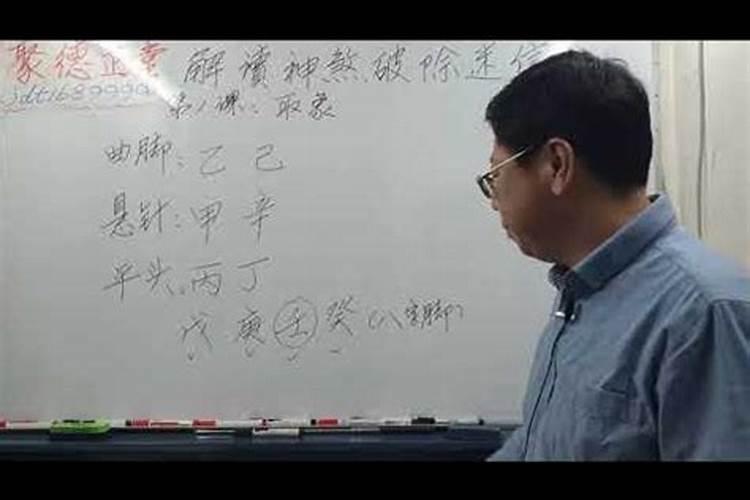 聚德正業 解讀神煞破除迷信
jdt1689999
第1課：取象
曲脚：乙 己
悬针：甲 辛
平头：丙 丁
戊 庚 壬 癸（八字脚）